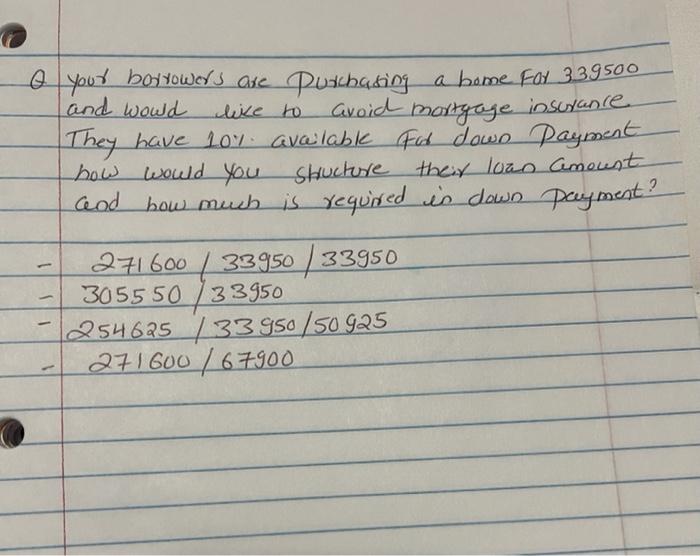 Q your borrowers are Purchasing a home For 339500
and would like to avoid mortgage insurance.
They have 10%. available For down Payment
how would you structure their loan amount
and how much is required in down payment?
- 271600 / 33950 / 33950
- 305550 / 33950
- 254625 / 33950 / 50925
- 271600 / 67900